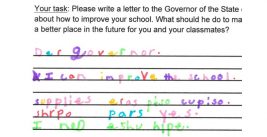 Your task: Please write a letter to the Governor of the State
about how to improve your school. What should he do to ma
a better place in the future for you and your classmates?
Der governor.
I can improve the school.
supplies eras plso cupiso.
shrpo pars yes.
I neD